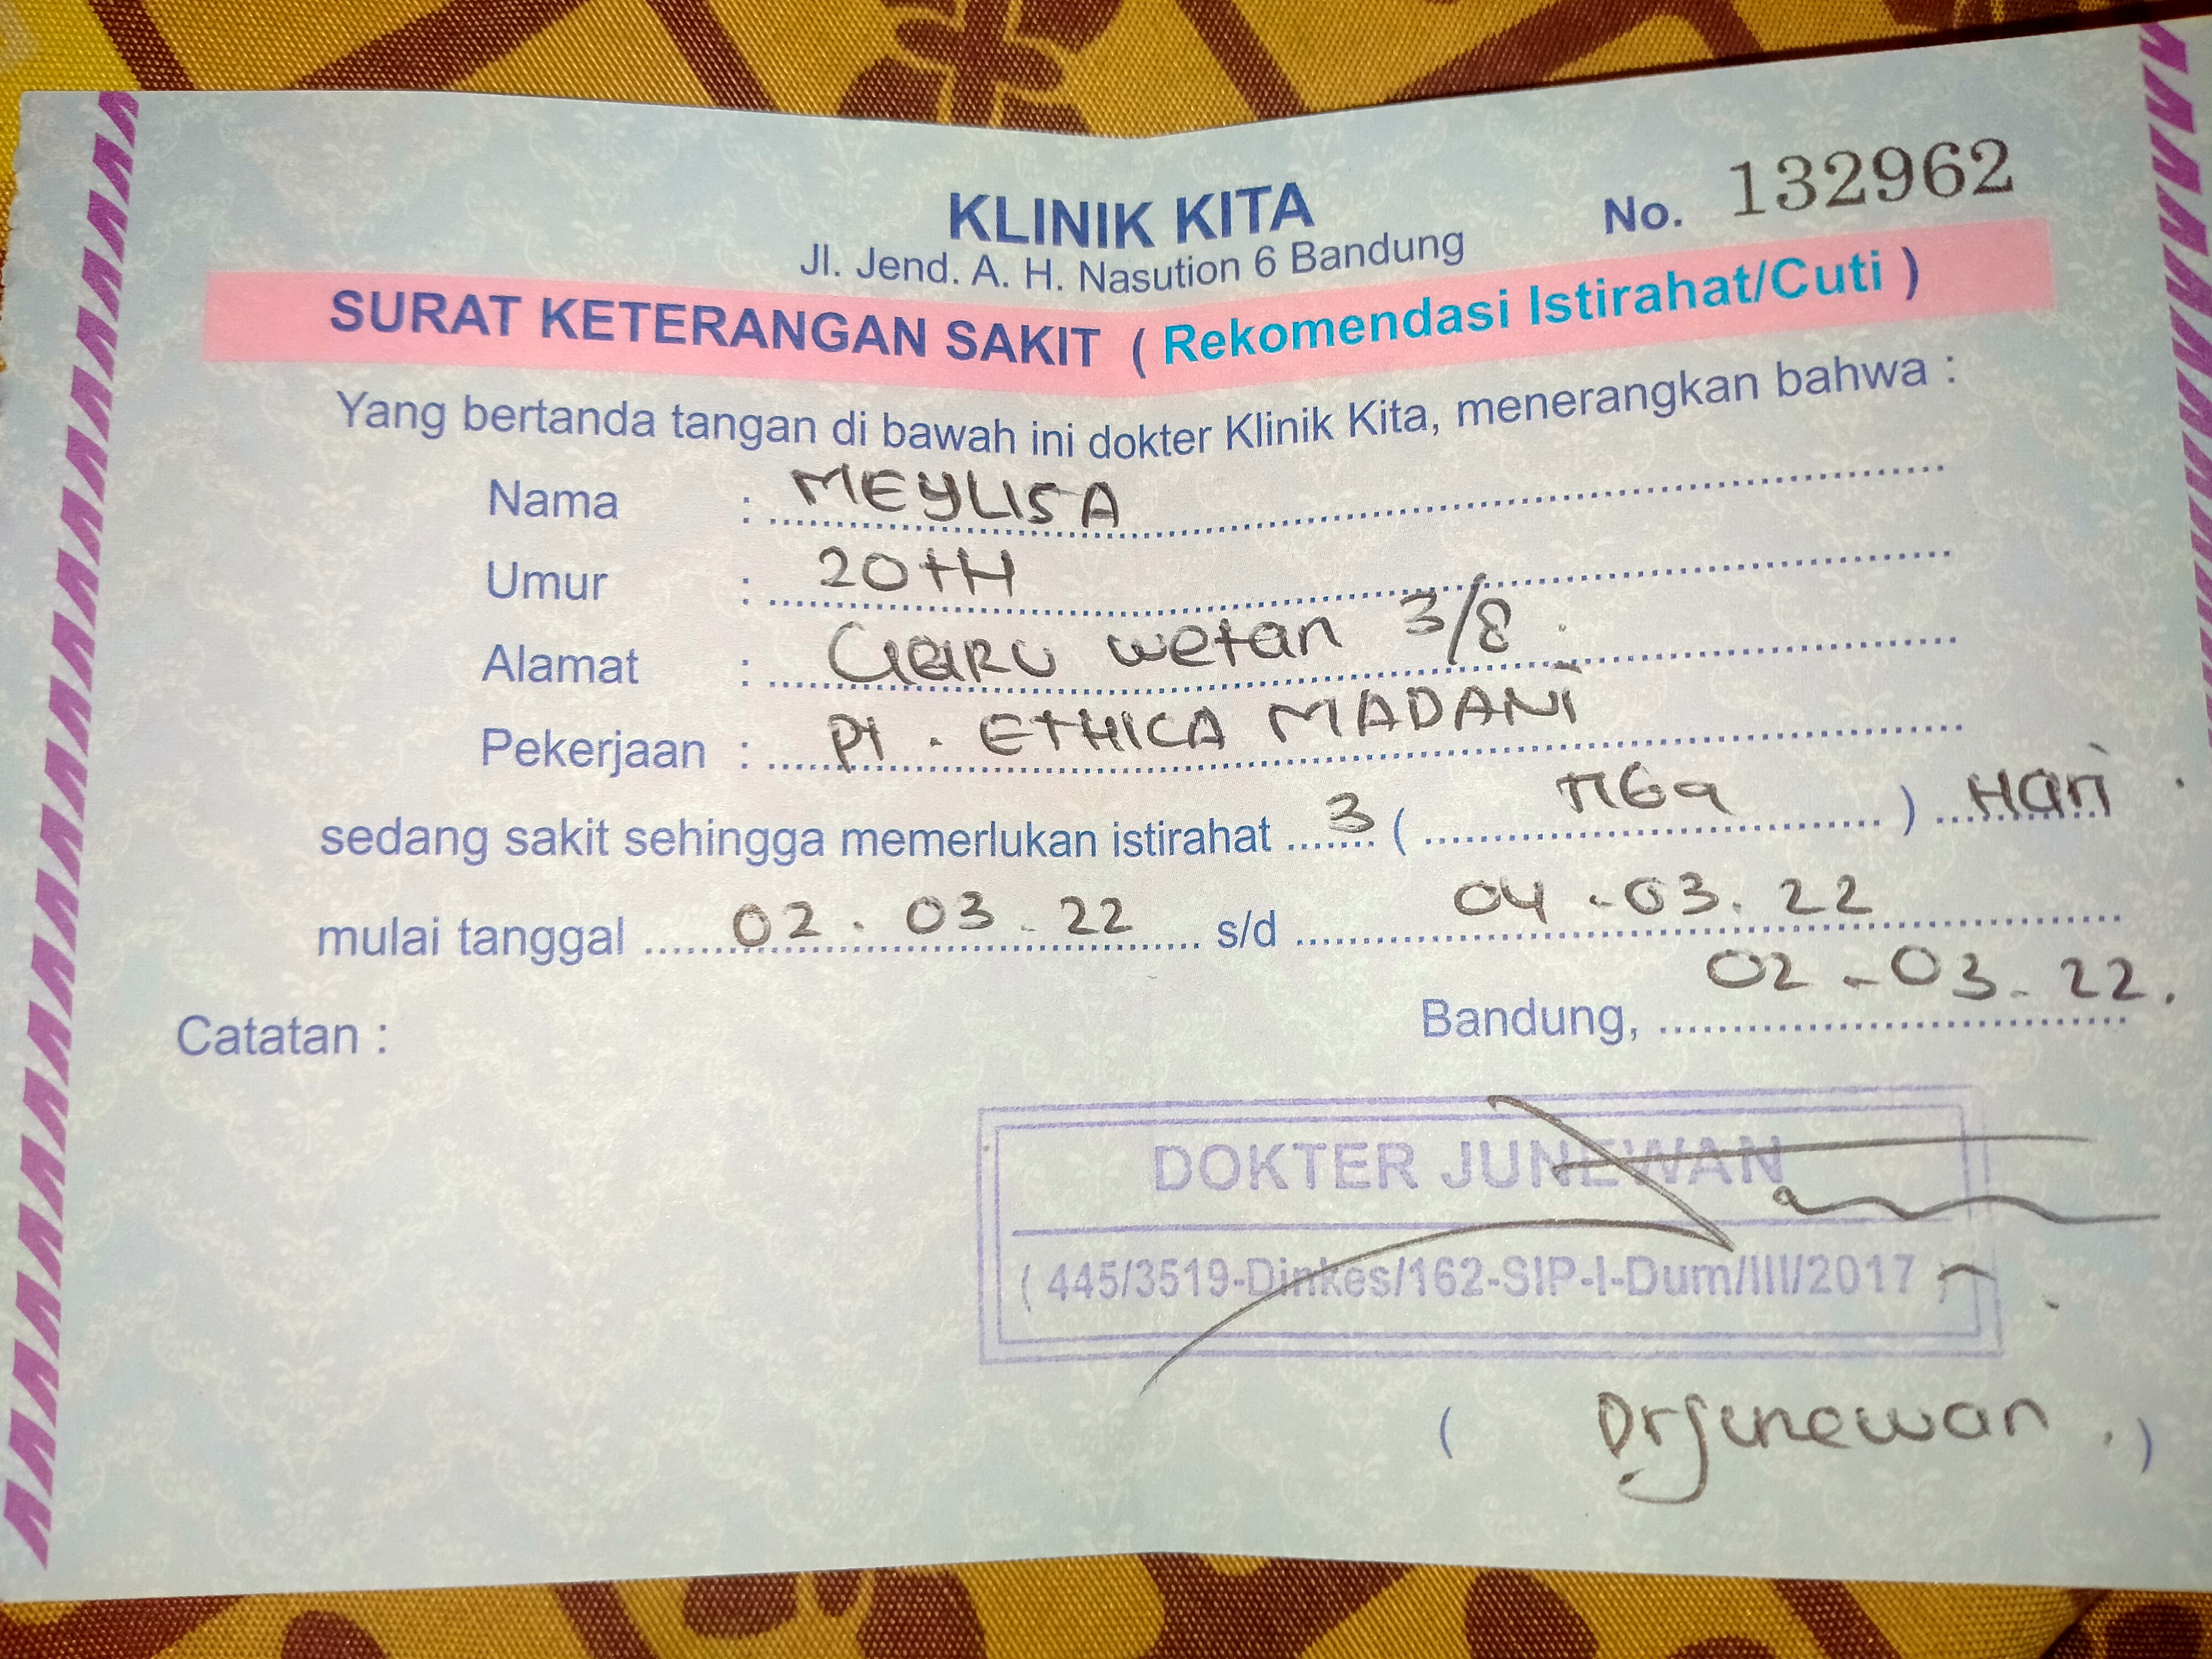 KLINIK KITA
No. 132962
Jl. Jend. A. H. Nasution 6 Bandung
SURAT KETERANGAN SAKIT ( Rekomendasi Istirahat/Cuti )
Yang bertanda tangan di bawah ini dokter Klinik Kita, menerangkan bahwa :
Nama : MEYLISA
Umur : 20 tH
Alamat : wetan 3/8
Pekerjaan : Pt. ETHICA MADANi
sedang sakit sehingga memerlukan istirahat 3 ( TIGa ) Hari
mulai tanggal 02. 03. 22 s/d 04 - 03. 22
Bandung, 02 - 03. 22.
Catatan :
DOKTER JUNEWAN
( 445/3519-Dinkes/162-SIP-I-Dum/III/2017
( Dr Junewan . )